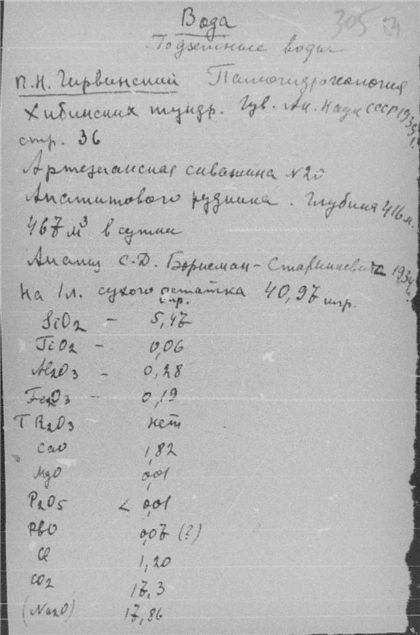 Вода
305
Подземные воды
П.Н. Чирвинский Палеогидрогеология
Хибинских тундр. Изв. Ак. Наук СССР 1939,
стр. 36
Артезианская скважина N 20
Апатитового рудника. Глубина 416 м.
467 м³ в сутки
Анализ С.Д. Борнеман-Старынкевич 1934
На 1 л. сухого остатка 40,97 млгр.
SiO2 - 5,47
TiO2 - 0,06
Al2O3 - 0,28
Fe2O3 - 0,19
TR2O3 нет
CaO 1,82
MgO 0,01
P2O5 < 0,01
PbO 0,07 (?)
Cl 1,20
CO2 17,3
(Na2O) 17,86